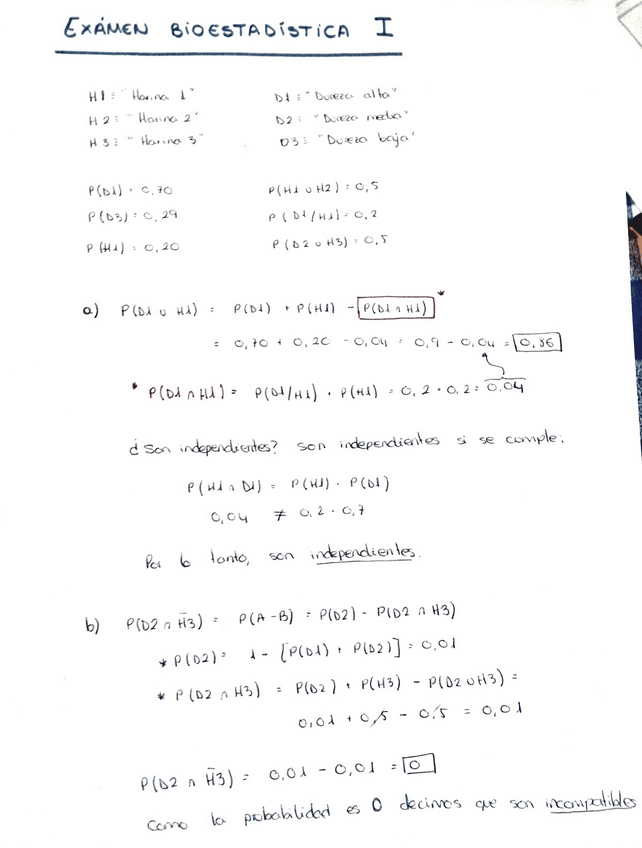 EXÁMEN BIOESTADÍSTICA I
H1 ≡ "Harina 1" D1 ≡ "Dureza alta"
H2 ≡ "Harina 2" D2 ≡ "Dureza media"
H3 ≡ "Harina 3" D3 ≡ "Dureza baja"
P(D1) = 0,70 P(H1 ∪ H2) = 0,5
P(D3) = 0,29 P(D1/H1) = 0,2
P(H1) = 0,20 P(D2 ∪ H3) = 0,5
a) P(D1 ∪ H1) = P(D1) + P(H1) - P(D1 ∩ H1) *
= 0,70 + 0,20 - 0,04 = 0,9 - 0,04 = 0,86
* P(D1 ∩ H1) = P(D1/H1) · P(H1) = 0,2 · 0,2 = 0,04
¿Son independientes? son independientes si se cumple:
P(H1 ∩ D1) = P(H1) · P(D1)
0,04 ≠ 0,2 · 0,7
Por lo tanto, son independientes.
b) P(D2 ∩ H̅3) = P(A-B) = P(D2) - P(D2 ∩ H3)
* P(D2) = 1 - [P(D1) + P(D2)] = 0,01
* P(D2 ∩ H3) = P(D2) + P(H3) - P(D2 ∪ H3) =
0,01 + 0,5 - 0,5 = 0,01
P(D2 ∩ H̅3) = 0,01 - 0,01 = 0
Como la probabilidad es 0 decimos que son incompatibles